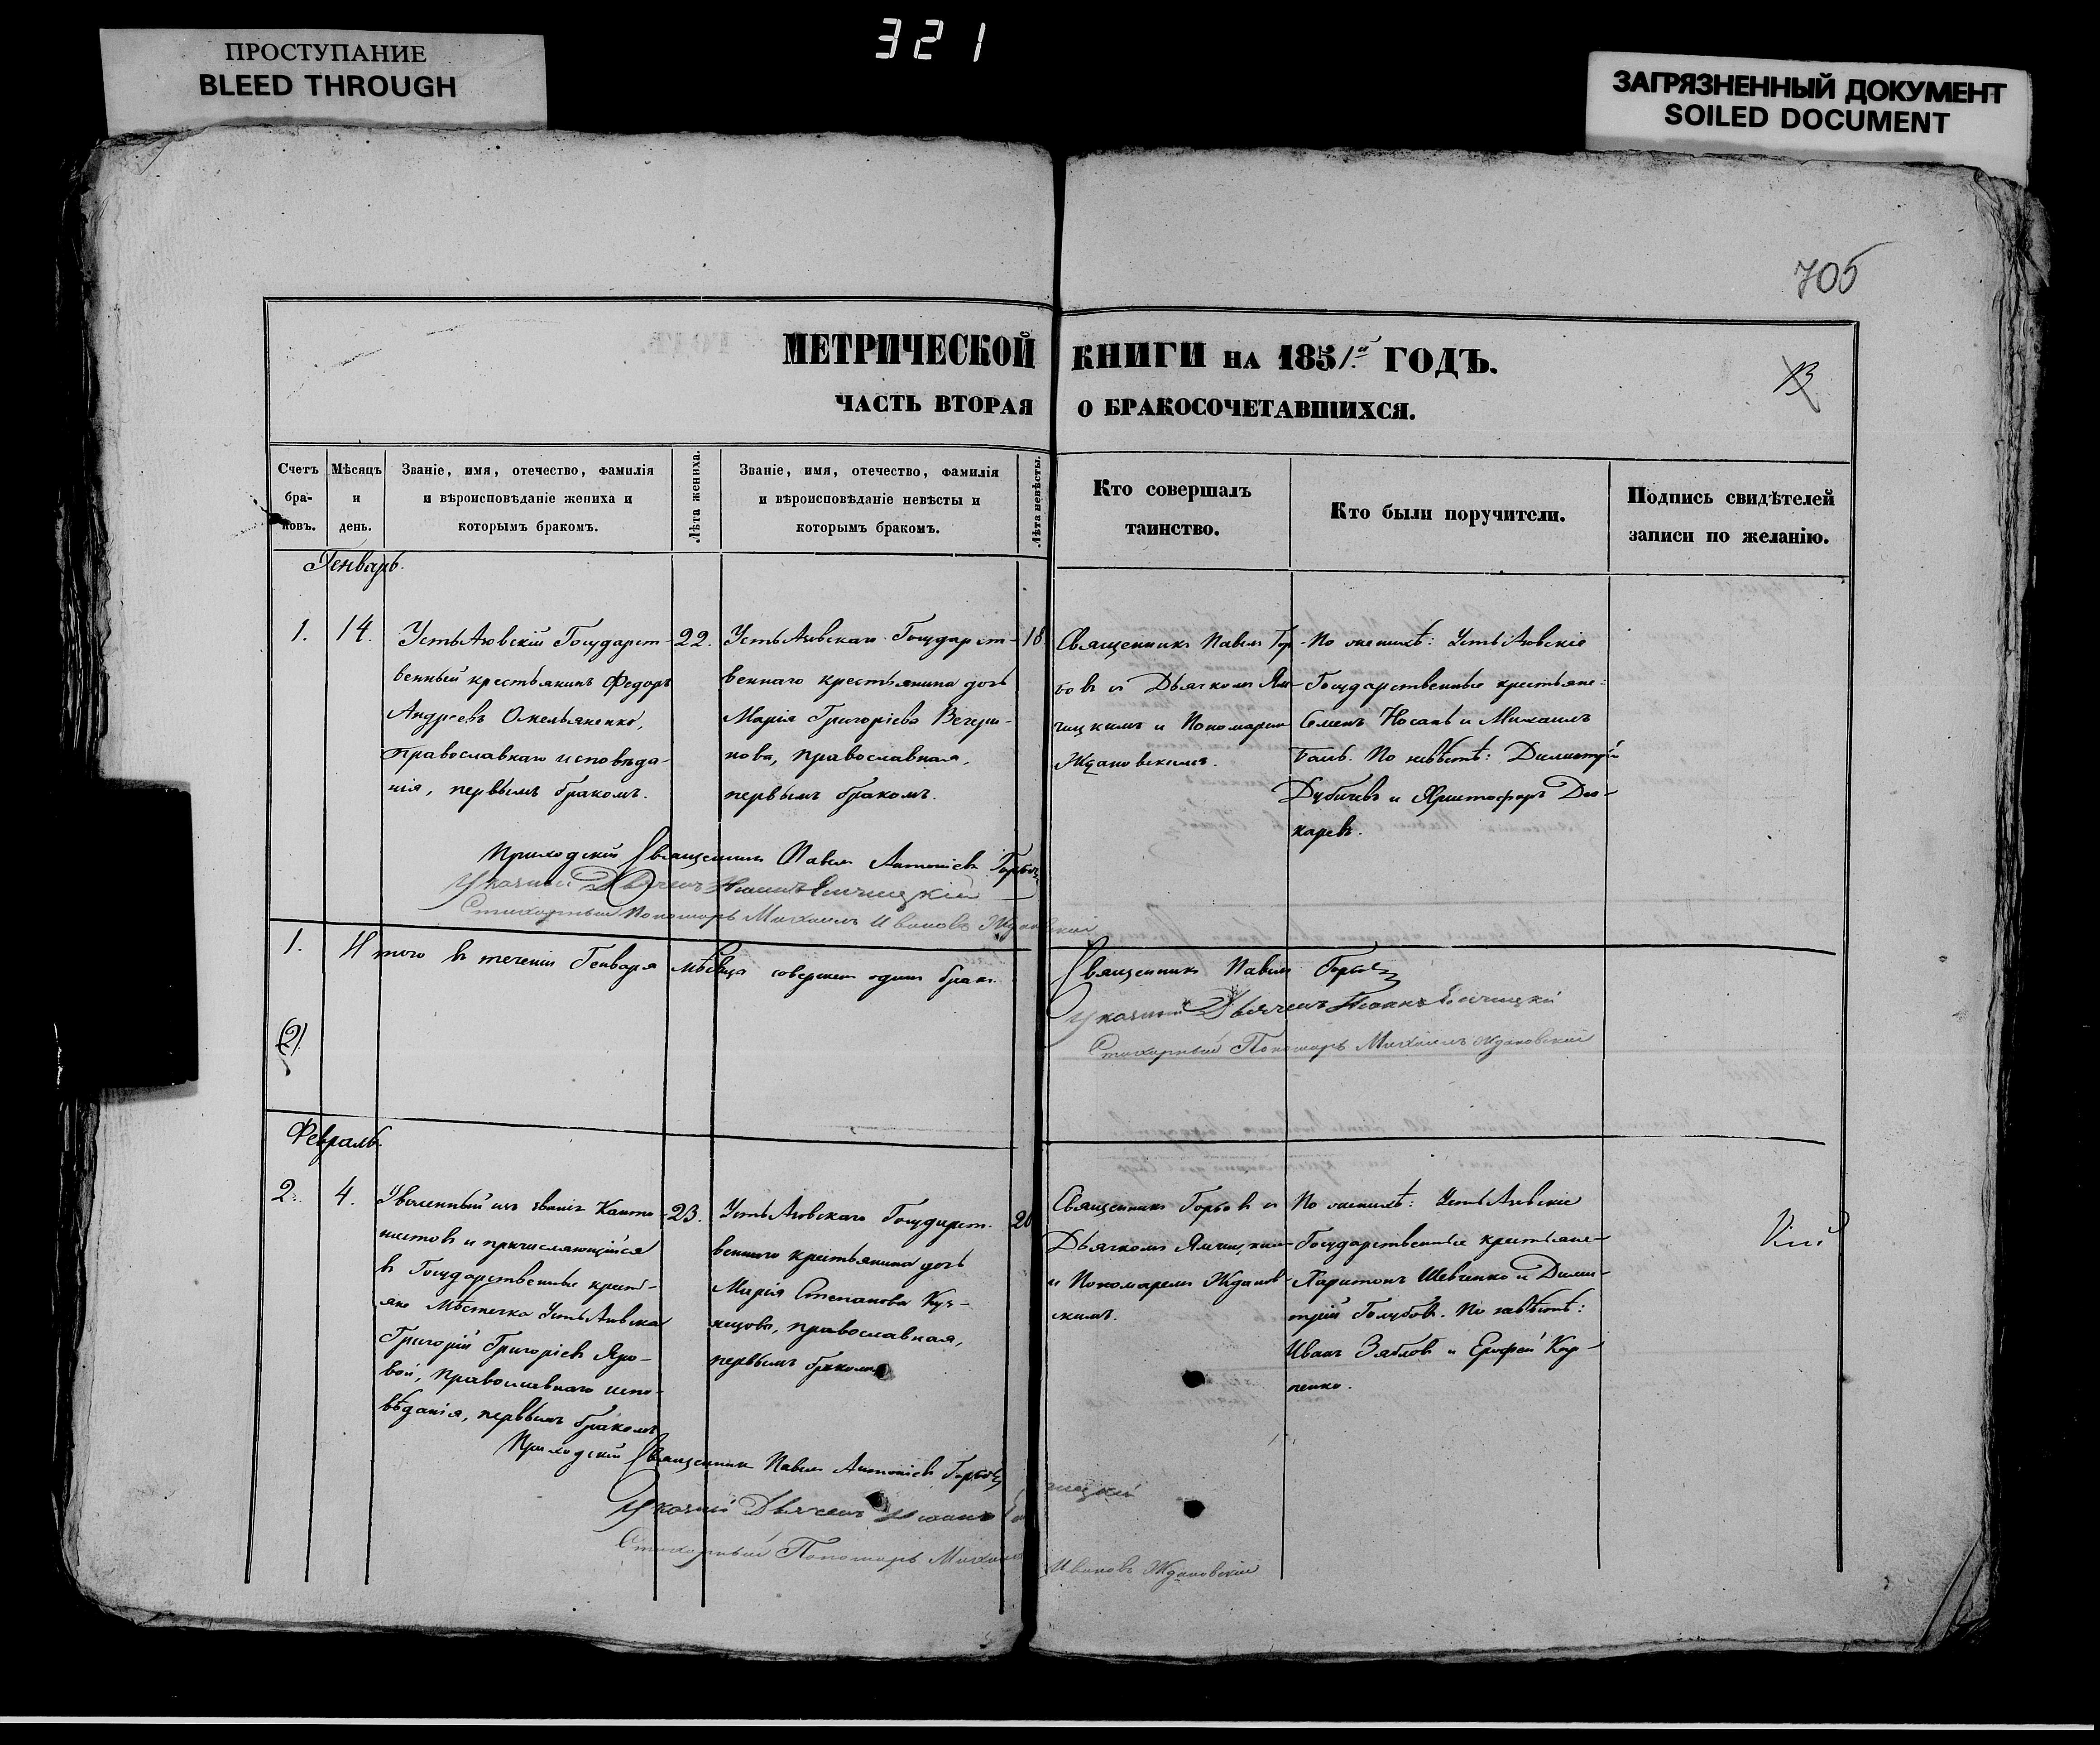 ПРОСТУПАНИЕ
BLEED THROUGH
321
ЗАГРЯЗНЕННЫЙ ДОКУМЕНТ
SOILED DOCUMENT
705
МЕТРИЧЕСКОЙ КНИГИ НА 1851й ГОДЪ.
ЧАСТЬ ВТОРАЯ О БРАКОСОЧЕТАВШИХСЯ.
Счетъ бра-ковъ.
Мѣсяцъ и день.
Званіе, имя, отечество, фамилія
и вѣроисповѣданіе жениха и
которымъ бракомъ.
Лѣта жениха.
Званіе, имя, отечество, фамилія
и вѣроисповѣданіе невѣсты и
которымъ бракомъ.
Лѣта невѣсты.
Кто совершалъ
таинство.
Кто были поручители.
Подпись свидѣтелей
записи по желанію.
Генварь.
1.
14.
УстьАзовскій Государст-
венный крестьянинъ Федоръ
Андреевъ Омельяненко,
православнаго исповѣда-
нія, первымъ бракомъ.
22.
УстьАзовскаго Государст-
веннаго крестьянина дочь
Марія Григоріева
нова, православная,
первымъ бракомъ.
18
Священникъ Павелъ Гор-
бовъ и Дьячкомъ
и Пономаремъ
Ждановскимъ.
По женихѣ: УстьАзовскіе
Государственные крестьяне:
Семенъ Носань и Михаилъ
По невѣстѣ: Димитрій
и Христофоръ
Приходскій Священникъ Павелъ Антоніевъ Горбовъ
Указный Дьячекъ
Стихарный Пономарь Михаилъ Ивановъ Ждановскій
1.
Итого въ теченіи Генваря мѣсяца совершенъ одинъ бракъ.
Священникъ Павелъ Горбовъ
Указный Дьячекъ Іоанъ
Стихарный Пономарь Михаилъ Ждановскій
(2).
Февраль.
2.
4.
Уволенный изъ званія Канто-
нистовъ и причисляющійся
въ Государственные кресть-
яне Мѣстечка УстьАзовска
Григорій Григоріевъ Яро-
вой, православнаго испо-
вѣданія, первымъ бракомъ
23.
УстьАзовскаго Государст-
веннаго крестьянина дочь
Марія Степанова Куз-
нецова, православная,
первымъ бракомъ
20
Священникъ Горбовъ и
Дьячкомъ
и Пономаремъ Жданов-
скимъ.
По женихѣ: УстьАзовскіе
Государственные крестьяне-
Харитонъ Шевченко и Дими-
трій Голубовъ. По невѣстѣ:
Иванъ Зябловъ и Ерофей Кар-
пенко.
Приходскій Священникъ Павелъ Антоніевъ Горбовъ
Указный Дьячекъ Іоанъ
Стихарный Пономарь Михаилъ Ивановъ Ждановскій